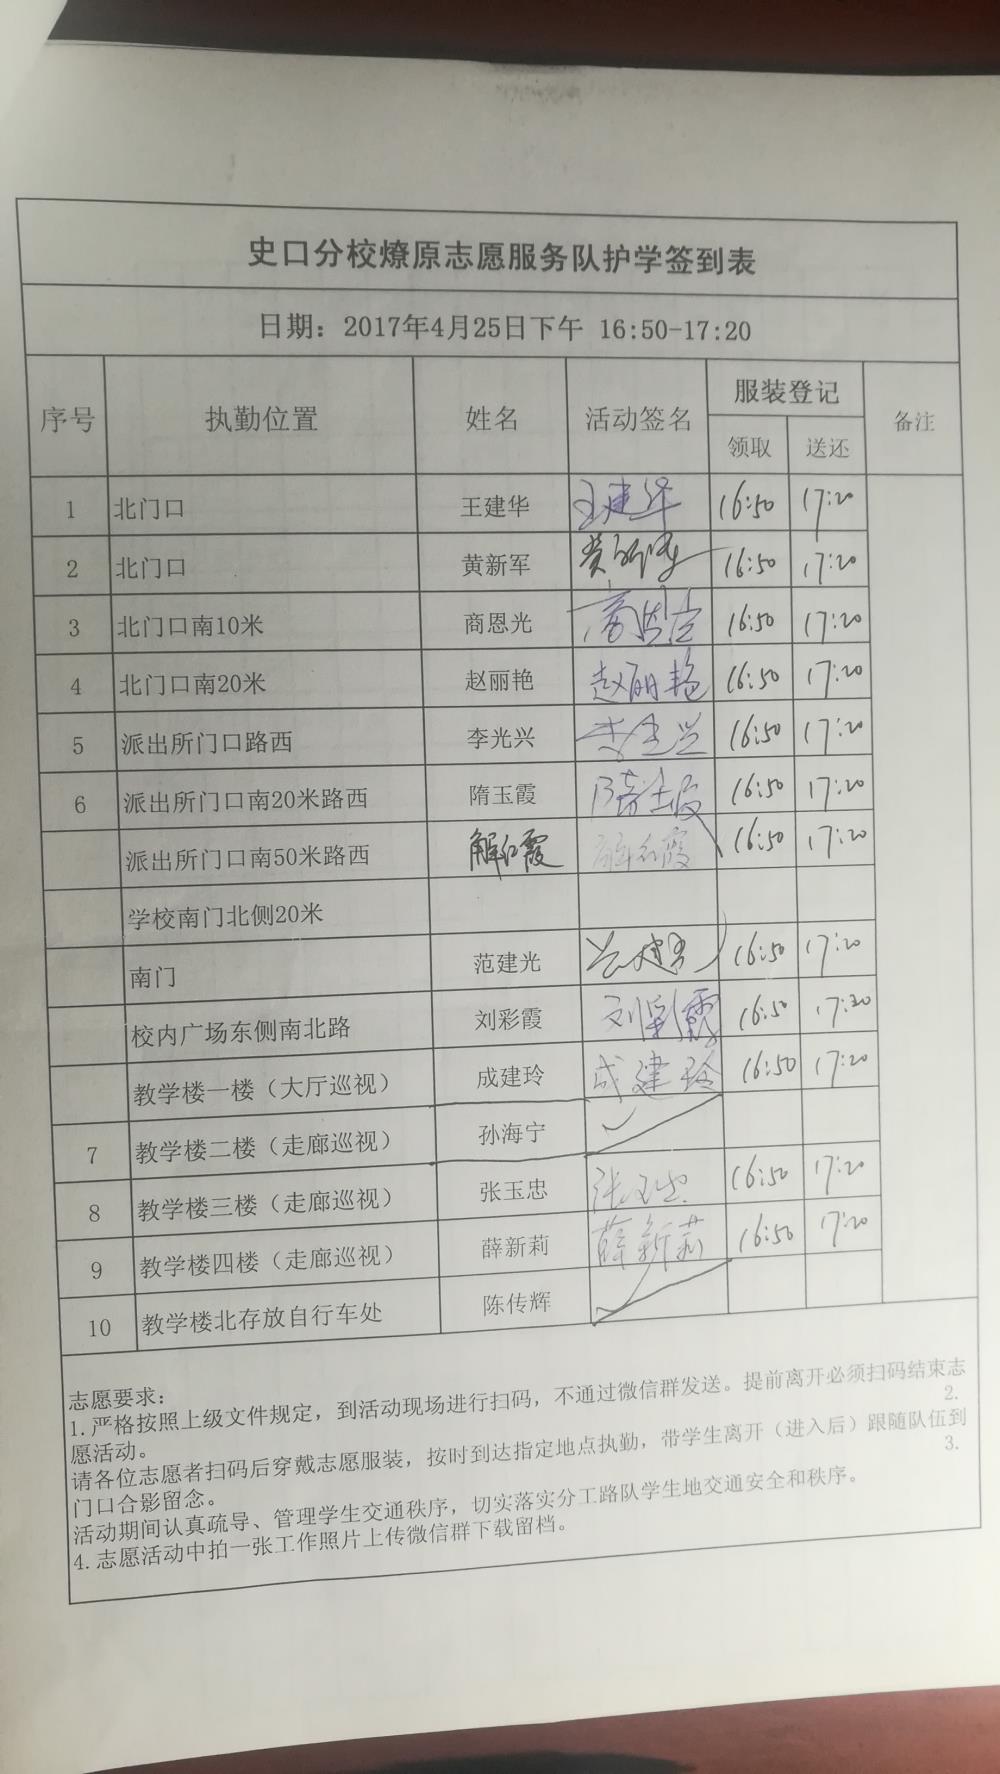 史口分校燎原志愿服务队护学签到表
日期：2017年4月25日下午 16:50-17:20
序号 执勤位置 姓名 活动签名 服装登记 备注
领取 送还
1 北门口 王建华 王建华 16:50 17:20
2 北门口 黄新军 16:50 17:20
3 北门口南10米 商恩光 商恩光 16:50 17:20
4 北门口南20米 赵丽艳 赵丽艳 16:50 17:20
5 派出所门口路西 李光兴 李光兴 16:50 17:20
6 派出所门口南20米路西 隋玉霞 隋玉霞 16:50 17:20
派出所门口南50米路西 解红霞 解红霞 16:50 17:20
学校南门北侧20米
南门 范建光 16:50 17:20
校内广场东侧南北路 刘彩霞 刘彩霞 16:50 17:20
教学楼一楼（大厅巡视） 成建玲 成建玲 16:50 17:20
7 教学楼二楼（走廊巡视） 孙海宁
8 教学楼三楼（走廊巡视） 张玉忠 张玉忠 16:50 17:20
9 教学楼四楼（走廊巡视） 薛新莉 薛新莉 16:50 17:20
10 教学楼北存放自行车处 陈传辉
志愿要求：
1.严格按照上级文件规定，到活动现场进行扫码，不通过微信群发送。提前离开必须扫码结束志
愿活动。 2.
请各位志愿者扫码后穿戴志愿服装，按时到达指定地点执勤，带学生离开（进入后）跟随队伍到
门口合影留念。 3.
活动期间认真疏导、管理学生交通秩序，切实落实分工路队学生地交通安全和秩序。
4.志愿活动中拍一张工作照片上传微信群下载留档。